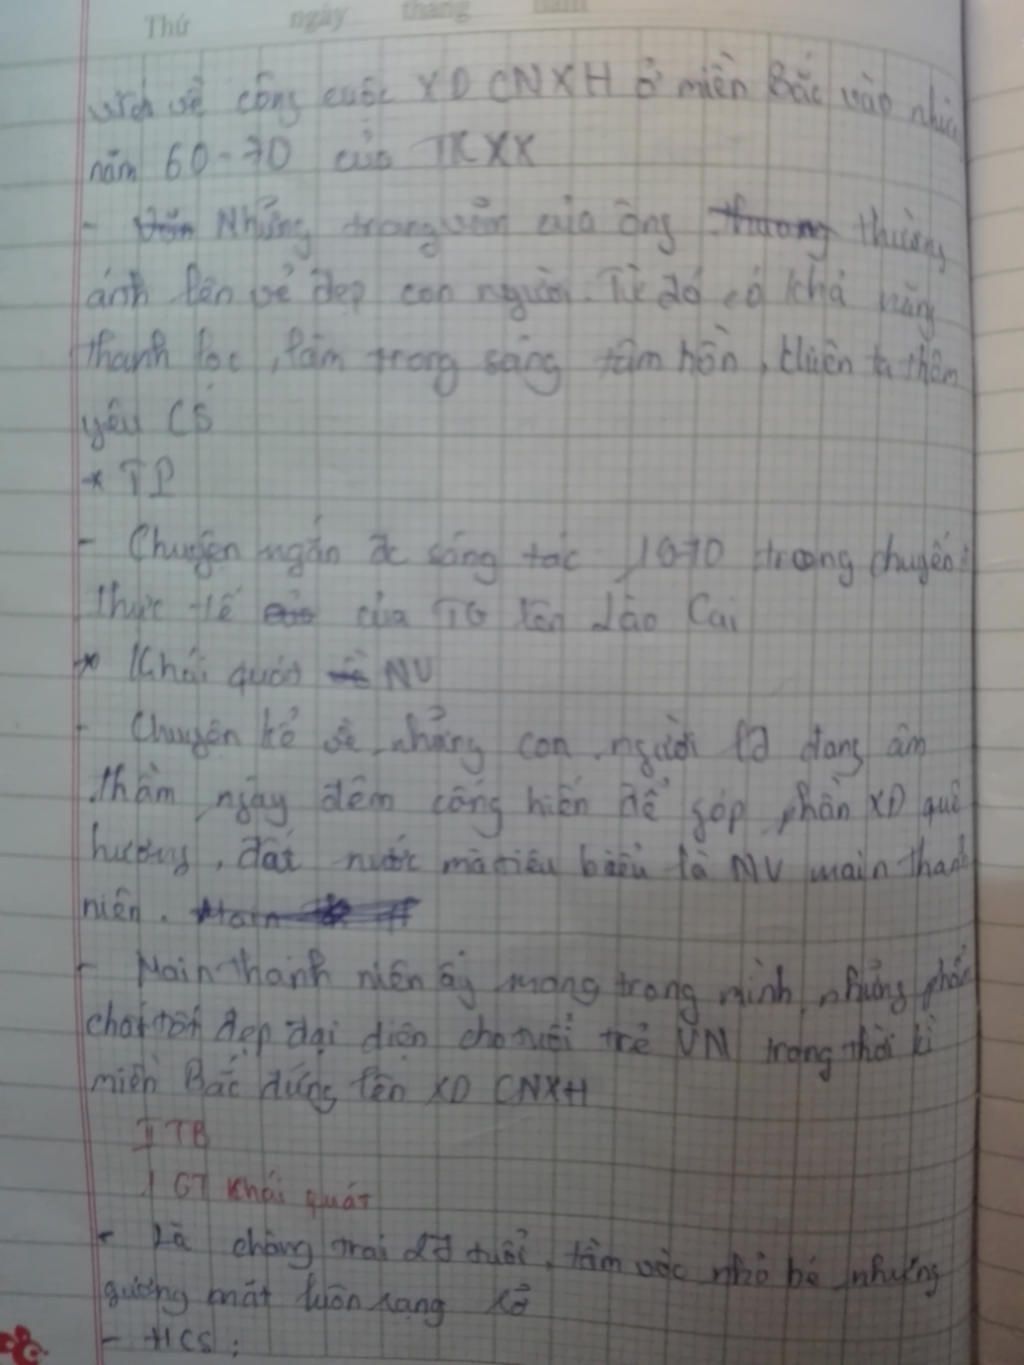 Thứ ngày tháng năm
viết về công cuộc XD CNXH ở miền Bắc vào những
năm 60-70 của TK XX
- Những trang văn của ông thường
ánh lên vẻ đẹp con người. Từ đó có khả năng
thanh lọc, làm trong sáng tâm hồn, khiến ta thêm
yêu CS
* TP
- Chuyện ngắn đc sáng tác 1970 trong chuyến
thực tế của TG lên Lào Cai
* Khái quát NV
- Chuyện kể về những con người đã đang âm
thầm ngày đêm cống hiến để góp phần XD quê
hương, đất nước mà tiêu biểu là NV main thanh
niên.
- Main thanh niên ấy mang trong mình những phẩm
chất tốt đẹp đại diện cho tuổi trẻ VN trong thời kì
miền Bắc đứng lên XD CNXH
II TB
1 GT khái quát
- Là chàng trai 27 tuổi, tầm vóc nhỏ bé nhưng
gương mặt luôn rạng rỡ
- HCS: